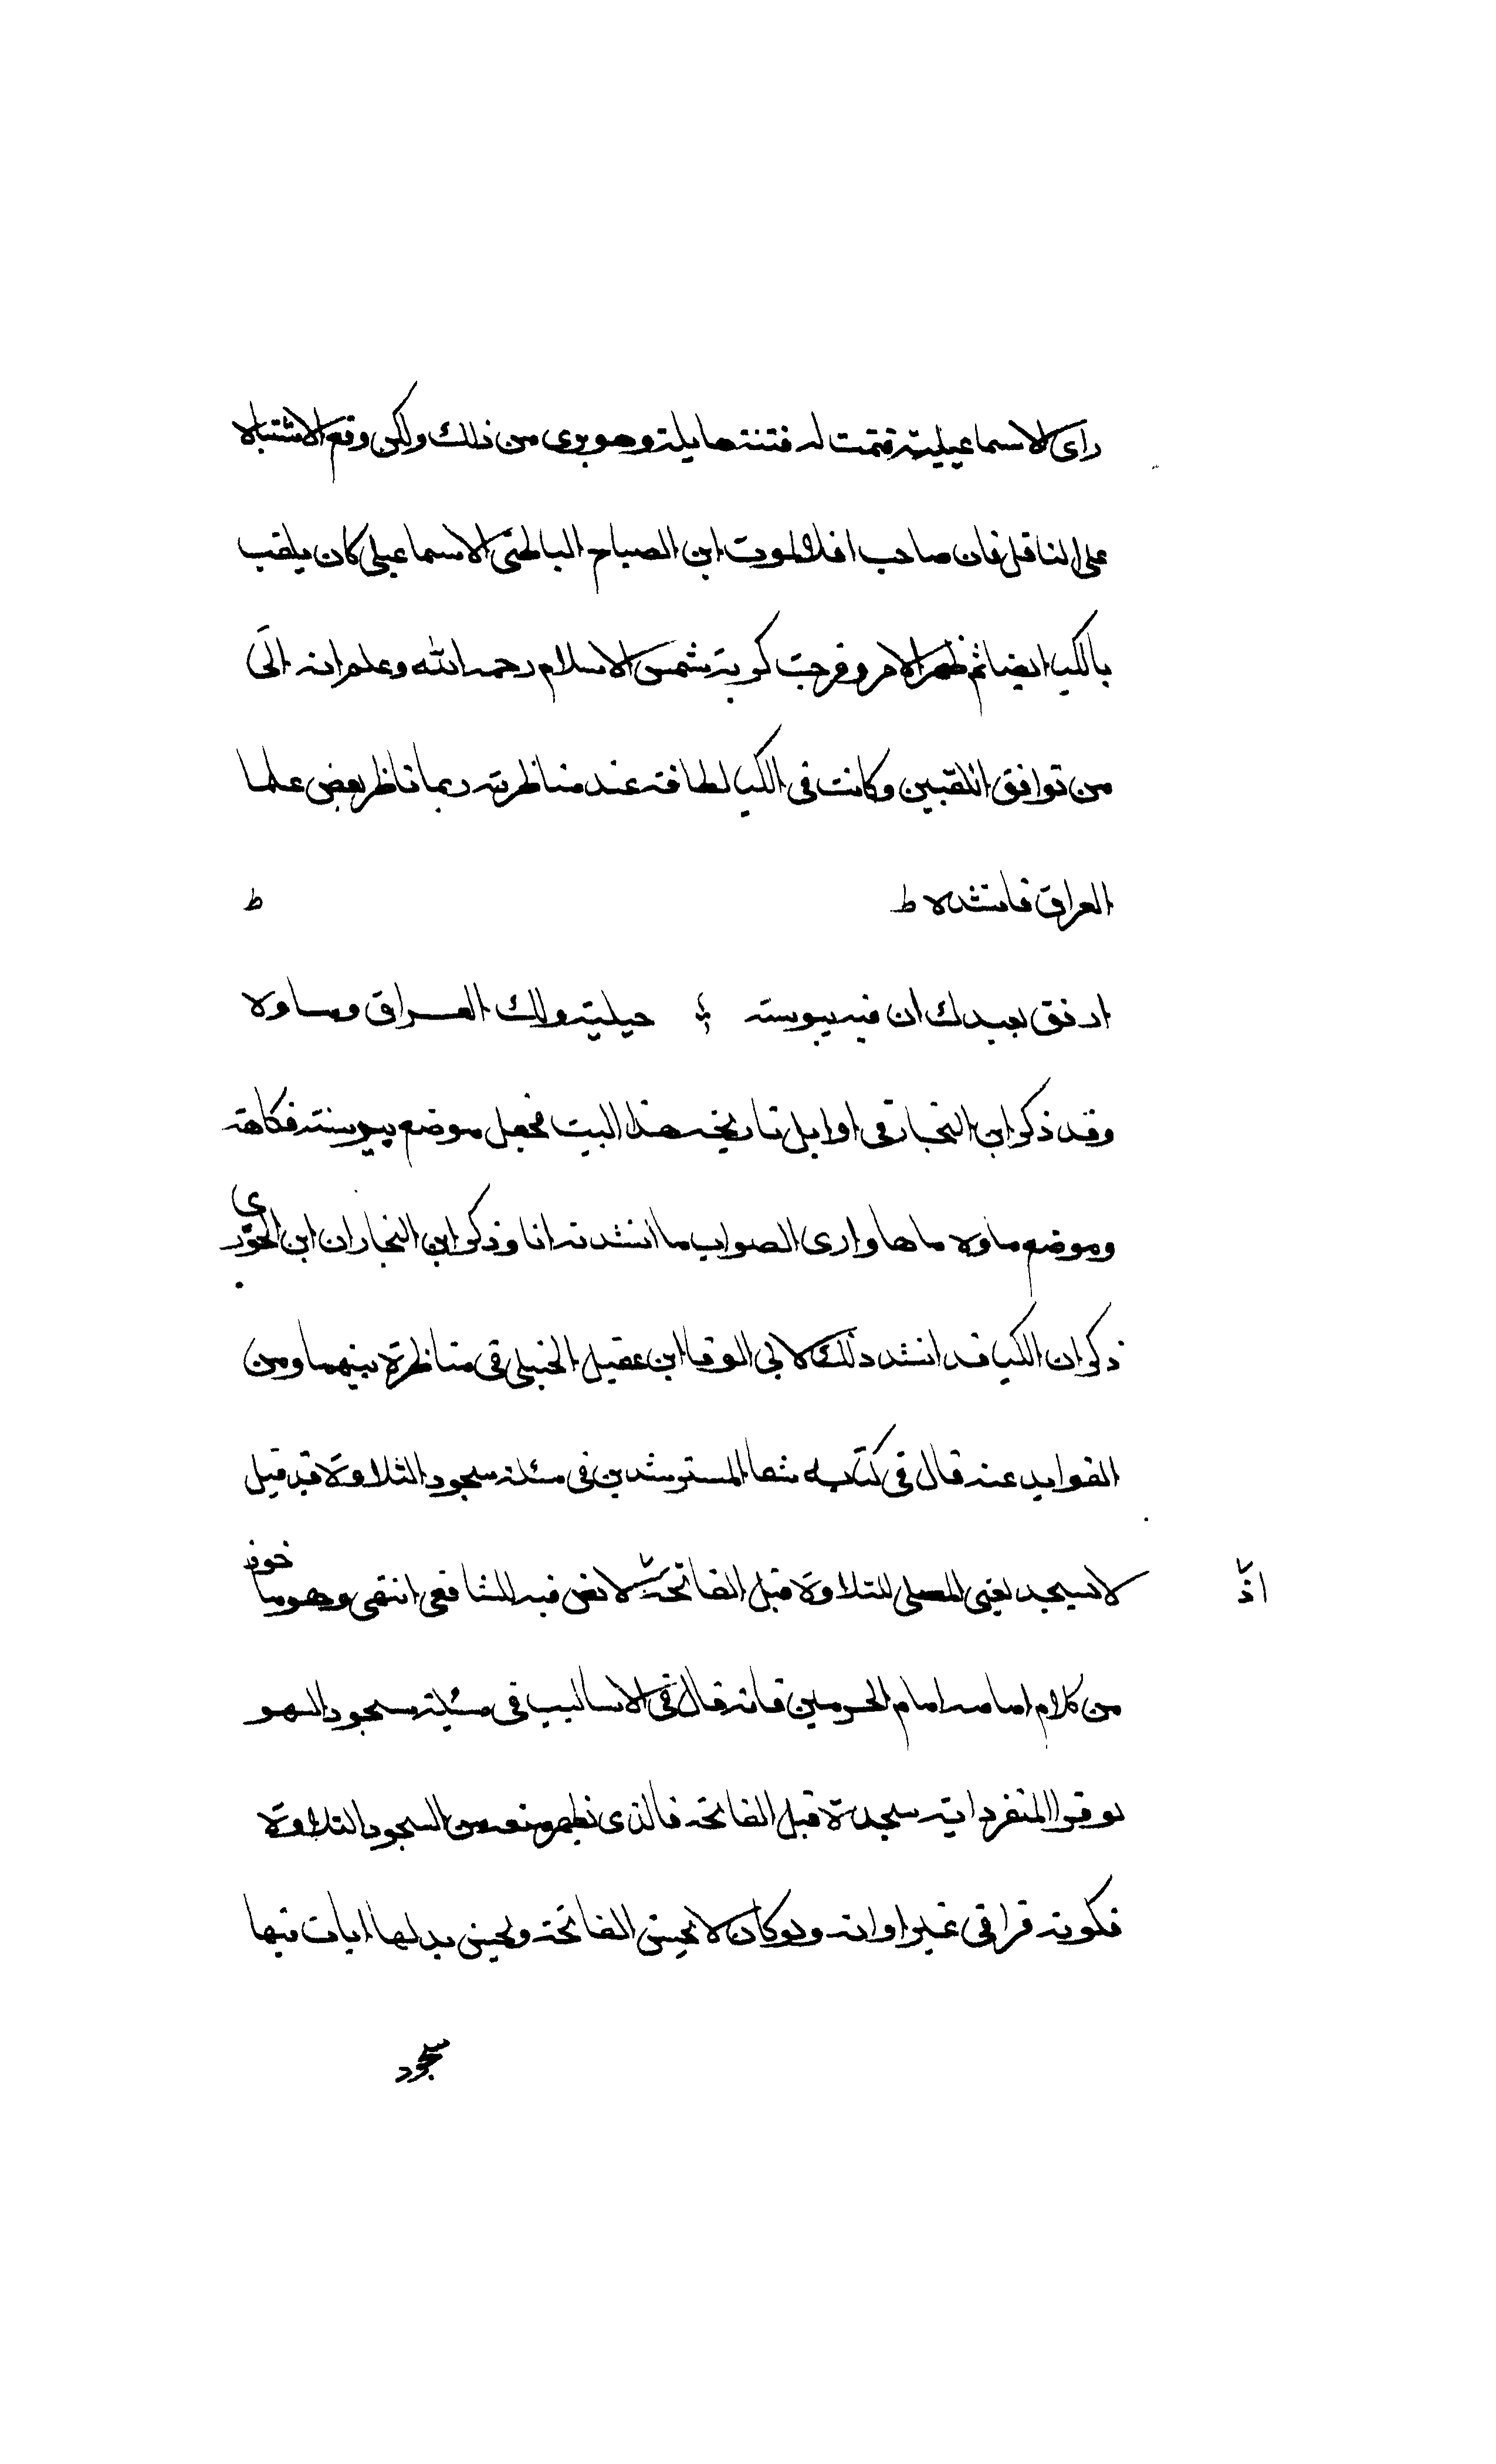 راى الاسماعيلية فتمت له فتنة هايلة وهو برى من ذلك ولكن وقع الاشتباه
على الناقل فان صاحب افلالموت ابن الصباح الباطنى الاسماعيلى كان يلقب
بالكيا ايضا ثم ظهر الامر وفرجت كربة شمس الاسلام رحمه الله وعلم انه اتى
من توافق اللقبين وكانت فى الكيا لطافة عند مناظرته ربما ناظر بعض علما
العراق فانشده ط ط
ارفق بعبدك ان فيه يبوسة حيلية ولك العراق وماوه
وقد ذكر ابن النجار فى اوايل تاريخه هذا البيت فجعل موضع يبوسته فكاهة
وموضع ماوه ماها وارى الصواب ما انشدته انا وذكر ابن النجار ان ابن الجوزى
ذكر ان الكيا قد انشد ذلك لابى الوفا ابن عقيل الحنبلى فى مناظرة بينهما ومن
الفوايد عنه قال فى كتابه شفا المسترشدين فى مسئلة سجود التلاوة قد قيل
لا يسجد يعنى المصلى للتلاوة قبل الفاتحة لا نص فيه للشافعى انتهى وهو ماخوذ
اذ
من كلام امامه امام الحرمين فانه قال فى الاساليب فى مسئلة سجود السهو
لو قرا المنفرد اية سجدة قبل الفاتحة فالذى يظهر منعه من السجود التلاوة
فكونه قرا فى غير اوانه ولو كان لا يحسن الفاتحة ويحسن بدلها ايات فيها
سجود